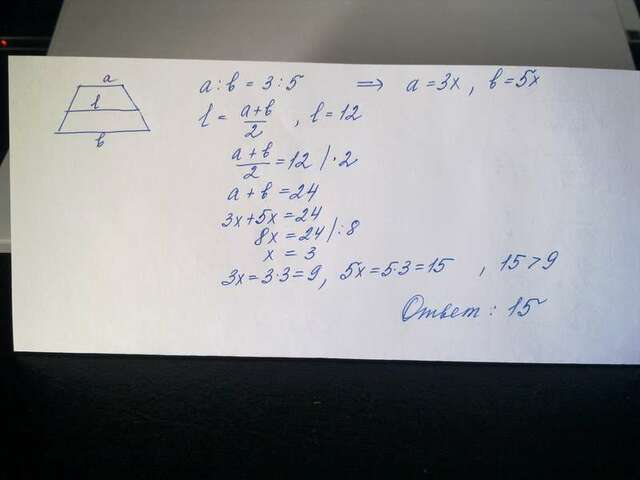 a
l
b
a : b = 3 : 5 ⟹ a = 3x , b = 5x
l = (a+b)/2 , l = 12
(a+b)/2 = 12 / · 2
a + b = 24
3x + 5x = 24
8x = 24 / : 8
x = 3
3x = 3·3 = 9 , 5x = 5·3 = 15 , 15 > 9
Ответ : 15